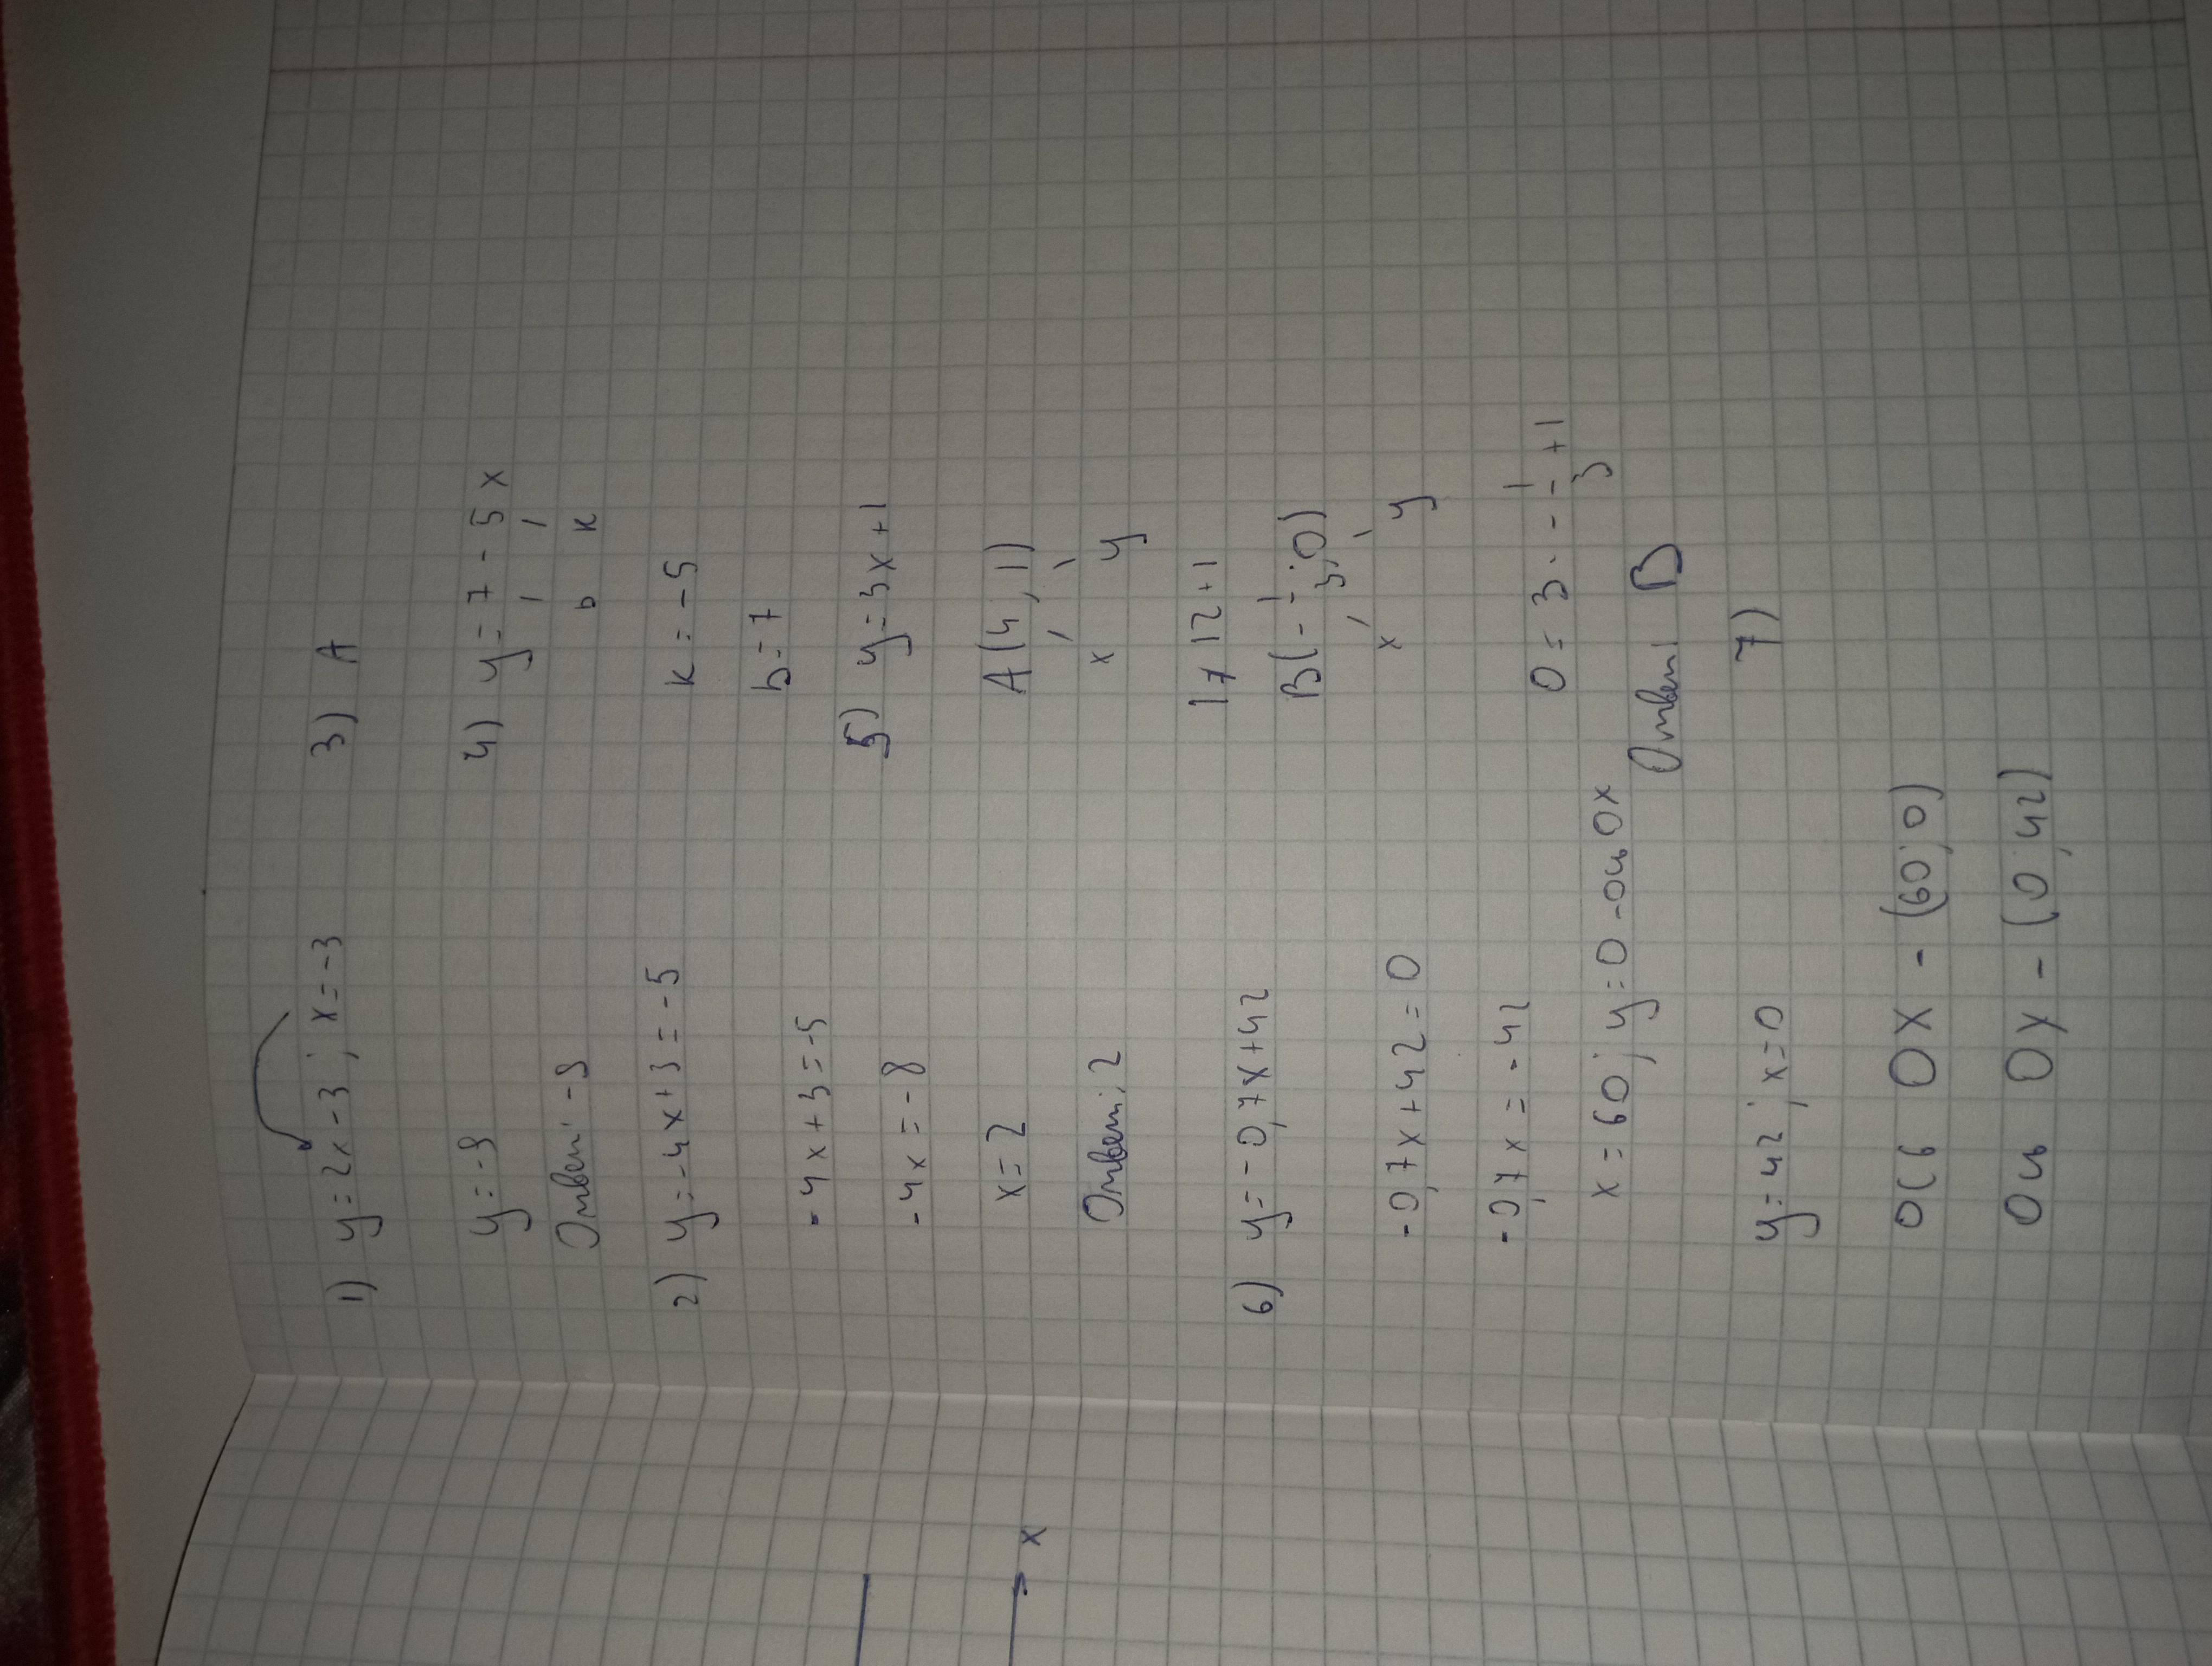 1) y=2x-3; x=-3
y=-9
Ответ: -9
2) y=-4x+3=-5
-4x+3=-5
-4x=-8
x=2
Ответ: 2
6) y=-0,7x+42
-0,7x+42=0
-0,7x=-42
x=60; y=0-ось OX
y=42; x=0
ось OX - (60;0)
Ось OY - (0;42)
3) A
4) y=7-5x
b k
k=-5
b=7
5) y=3x+1
A(4,1)
x y
1≠12+1
B(-1/3;0)
x y
0=3·-1/3+1
Ответ B
7)
x